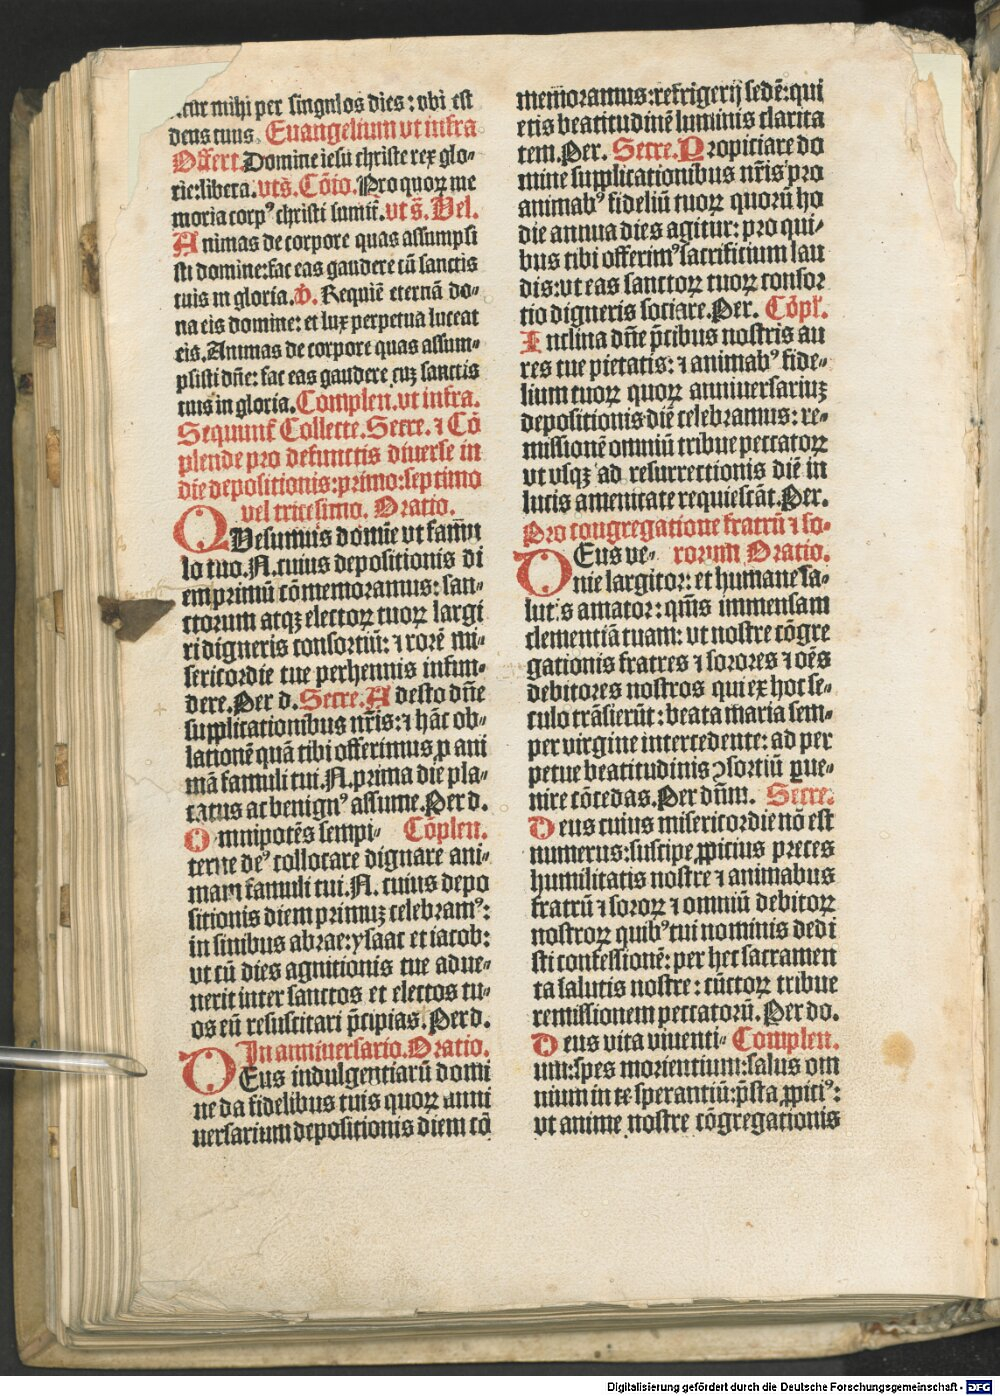 mihi per singulos dies: vbi est
deus tuus. Euangelium vt infra
Offert. Domine iesu christe rex glo⸗
rie: libera. vts̄. Cōio. Pro quoꝝ me
moria corpꝰ christi sumit̄. vt s̄. Vel.
Animas de corpore quas assumpsi
sti domine: fac eas gaudere cū sanctis
tuis in gloria. V̄. Requiē eternā do⸗
na eis domine: et lux perpetua luceat
eis. Animas de corpore quas assum⸗
psisti dn̄e: fac eas gaudere cuꝫ sanctis
tuis in gloria. Complen. vt infra.
Sequunt̄ Collecte. Secre. ⁊ Cō
plende pro defunctis diuerse in
die depositionis: primo: septimo
vel tricesimo. Oratio.
QVesumus domie vt famu
lo tuo. N. cuius depositionis di
em primū cōmemoramus: san⸗
ctorum atqꝫ electoꝝ tuoꝝ largi
ri digneris consortiū: ⁊ rorē mi⸗
sericordie tue perhennis infun⸗
dere. Per d. Secre. Adesto dn̄e
supplicationibus nr̄is: ⁊ hāc ob⸗
lationē quā tibi offerimus ꝓ ani
mā famuli tui. N. prima die pla⸗
catus ac benignꝰ assume. Per d.
Omnipotēs sempi⸗ Cōplen.
terne deꝰ collocare dignare ani⸗
mam famuli tui. N. cuius depo
sitionis diem primuꝫ celebramꝰ:
in sinibus abrae: ysaac et iacob:
vt cū dies agnitionis tue adue⸗
nerit inter sanctos et electos tu⸗
os eū resuscitari p̄cipias. Per d.
In anniuersario. Oratio.
DEus indulgentiarū domi
ne da fidelibus tuis quoꝝ anni
uersarium depositionis diem cō
memoramus: refrigerij sedē: qui
etis beatitudinē luminis clarita
tem. Per. Secre. Propiciare do
mine supplicationibus nr̄is pro
animabꝰ fideliū tuoꝝ quorū ho
die annua dies agitur: pro qui⸗
bus tibi offerimꝰ sacrificium lau
dis: vt eas sanctoꝝ tuoꝝ consor
tio digneris sociare. Per. Cōpl̄.
Inclina dn̄e p̄cibus nostris au
res tue pietatis: ⁊ animabꝰ fide⸗
lium tuoꝝ quoꝝ anniuersariuꝫ
depositionis diē celebramus: re⸗
missionē omniū tribue peccatoꝝ
vt vsqꝫ ad resurrectionis diē in
lucis amenitate requiescāt. Per.
Pro congregatione fratrū ⁊ so⸗
DEus ve⸗ rorum Oratio.
nie largitor: et humane sa⸗
lutis amator: qm̄s immensam
clementiā tuam: vt nostre cōgre
gationis fratres ⁊ sorores ⁊ oēs
debitores nostros qui ex hoc se⸗
culo trāsierūt: beata maria sem⸗
per virgine intercedente: ad per
petue beatitudinis ꝯsortiū ꝑue⸗
nire cōcedas. Per dn̄m. Secre.
Deus cuius misericordie nō est
numerus: suscipe ꝓpicius preces
humilitatis nostre ⁊ animabus
fratrū ⁊ soroꝝ ⁊ omniū debitoꝝ
nostroꝝ quibꝰ tui nominis dedi
sti confessionē: per hec sacramen
ta salutis nostre: cūctoꝝ tribue
remissionem peccatorū. Per do.
Deus vita viuenti⸗ Complen.
um: spes morientium: salus om
nium in te sperantiū: p̄sta ꝓpiciꝰ:
vt anime nostre cōgregationis
Digitalisierung gefördert durch die Deutsche Forschungsgemeinschaft - DFG